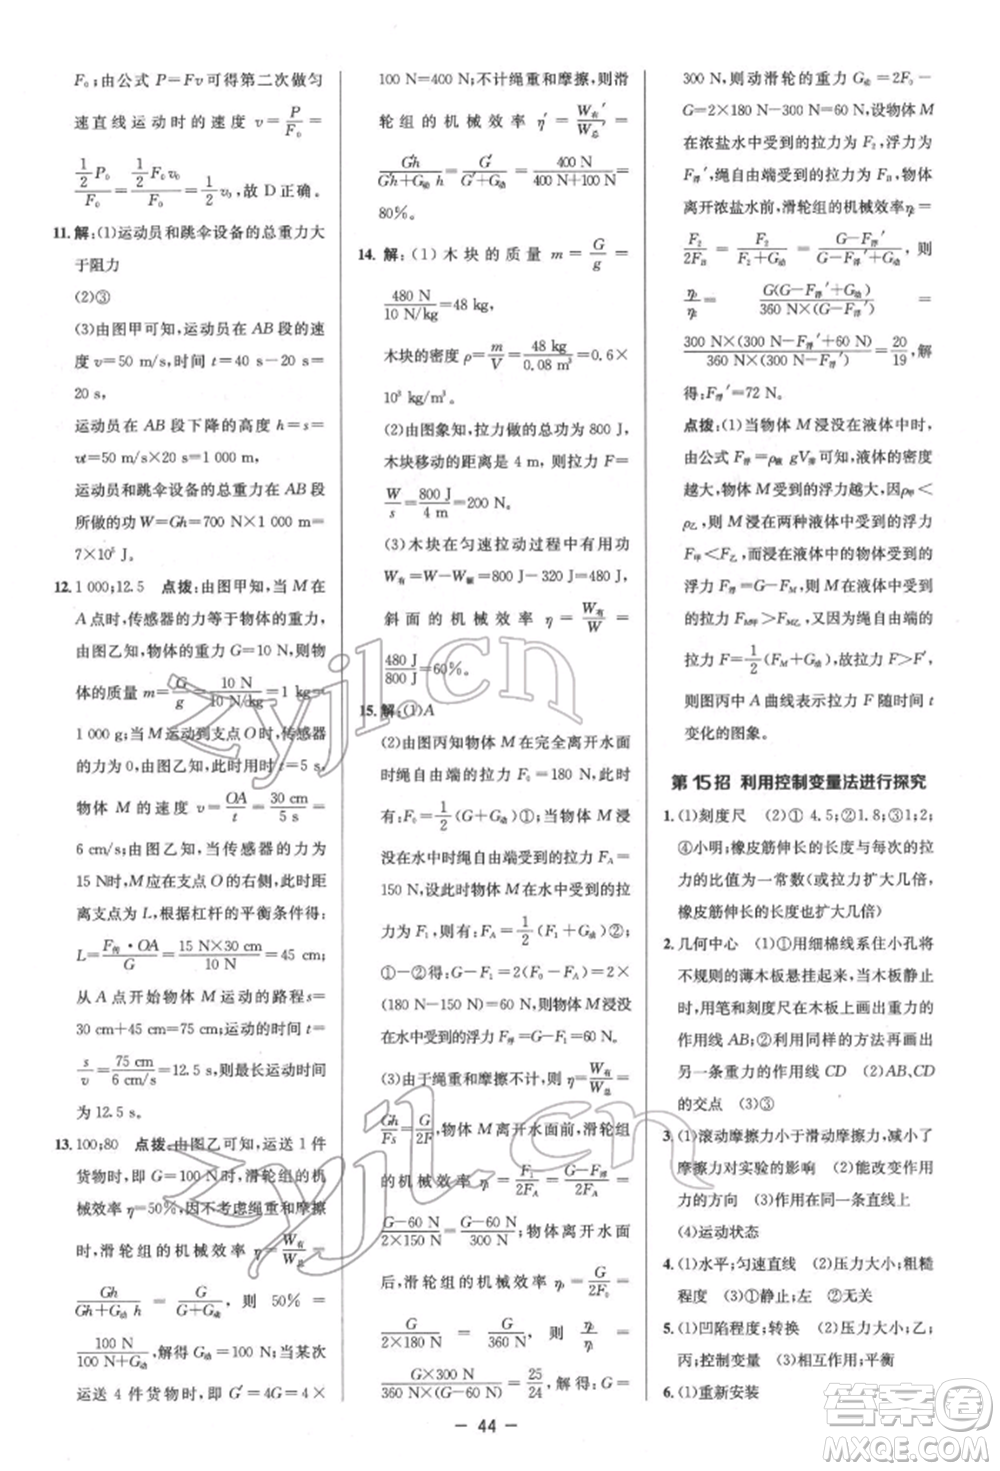 F₀;由公式 P=Fv可得第二次做匀
速直线运动时的速度 v=P/F₀=
(1/2 P₀)/F₀=(1/2 F₀v₀)/F₀=1/2 v₀,故 D 正确。
11. 解:(1)运动员和跳伞设备的总重力大
于阻力
(2)③
(3)由图甲可知,运动员在 AB 段的速
度 v=50 m/s,时间 t=40 s-20 s=
20 s,
运动员在 AB 段下降的高度 h=s=
vt=50 m/s×20 s=1 000 m,
运动员和跳伞设备的总重力在 AB 段
所做的功 W=Gh=700 N×1 000 m=
7×10⁵ J。
12. 1 000;12.5 点拨:由图甲知,当 M 在
A 点时,传感器的力等于物体的重力,
由图乙知,物体的重力 G=10 N,则物
体的质量 m=G/g=10 N/(10 N/kg)=1 kg=
1 000 g;当 M 运动到支点 O 时,传感器
的力为 0,由图乙知,此时 t=5 s,则
物体 M 的速度 v=OA/t=30 cm/5 s=
6 cm/s;由图乙知,当传感器的力为
15 N时,设 M 在 O 点的右侧,此时距
离支点为 L,根据杠杆的平衡条件得:
L=F传·OA/G=15 N×30 cm/10 N=45 cm,
从 A 点开始物体 M 运动的路程s=
30 cm+45 cm=75 cm;运动的时间 t=
s/v=75 cm/(6 cm/s)=12.5 s,则最长运动时间
为12.5 s。
13. 100;80 点拨:由图乙可知,运送 1 件
货物时,即 G=100 N时,滑轮组的机械
效率 η=50%,因不考虑绳重和摩擦
时,滑轮组的机械效率 η=W有/W总=
Gh/(Gh+G动h)=G/(G+G动),则 50%=
100 N/(100 N+G动),解得 G动=100 N;当某次
运送 4 件货物时,则 G′=4G=4×
100 N=400 N;不计绳重和摩擦,则滑
轮组的机械效率 η′=W有′/W总′=
G′h/(G′h+G动h)=G′/(G′+G动)=400 N/(400 N+100 N)=
80%。
14. 解:(1)木块的质量 m=G/g=
480 N/(10 N/kg)=48 kg,
木块的密度 ρ=m/V=48 kg/0.08 m³=0.6×
10³ kg/m³。
(2)由图象知,拉力做的总功为 800 J,
木块移动的距离是 4 m,则拉力 F=
W/s=800 J/4 m=200 N。
(3)木块在匀速拉动过程中有用功
W有=W-W额=800 J-320 J=480 J,
斜面的机械效率 η=W有/W=
480 J/800 J=60%。
15. 解:(1)A
(2)由图丙知物体 M 在完全离开水面
时绳自由端受到的拉力 F₀=180 N,则
F₀=1/2(G+G动)①;当物体 M 浸没
在水中时绳自由端受到的拉力 F_A=
150 N,设物体 M 在水中时受到的拉
力为 F₁,则有:F_A=1/2(F₁+G动)②;
由①②可得:G-F₁=2(F₀-F_A)=2×
(180 N-150 N)=60 N,则物体M浸没
在水中受到的浮力 F浮=G-F₁=60 N。
(3)由于绳重和摩擦不计,则 η=W有/W总=
Gh/Fs=G/2F,则物体离开水面前,滑轮组
的机械效率 η₁=F₁/2F_A=(G-F浮)/2F_A=
(G-60 N)/(2×150 N)=(G-60 N)/300 N;物体离开水面
后,滑轮组的机械效率 η₂=G/2F₀=
G/(2×180 N)=G/360 N,则 η₁/η₂=
(G×300 N)/(360 N×(G-60 N))=25/24,解得:G=
300 N,则动滑轮的重力 G动=2F₀-
G=2×180 N-300 N=60 N,设物体 M
在浓盐水中受到的拉力为 F₂,浮力为
F浮′,绳自由端受到的拉力为 F_B,物体
离开浓盐水前,滑轮组的机械效率η₃
=F₂/2F_B=F₂/(F₂+G动)=(G-F浮′)/(G-F浮′+G动),则
η₁/η₃=G(G-F浮′+G动)/(360 N×(G-F浮′))=
300 N×(300 N-F浮′+60 N)/(360 N×(300 N-F浮′))=20/19,解
得:F浮′=72 N。
点拨:(1)当物体 M 浸没在液体中时,
由公式 F浮=ρ液gV排可知,液体的密度
越大,物体 M 受到的浮力越大,因ρ甲<
ρ乙,则 M 浸没在两种液体中受的浮力
F甲<F乙,而浸没在液体中时,受到的
浮力 F浮=G-F_M,则物体 M 受到绳
的拉力 F_M甲>F_M乙,绳自由端受到的
拉力 F=1/2(F_M+G动),故拉力 F>F′,
则图丙中 A 曲线表示拉力 F 随时间 t
变化的图象。
第 15招 利用控制变量法进行探究
1. (1)刻度尺 (2)① 4.5;②1.8;③1;2;
④小明;橡皮筋伸长的长度与每次的拉
力的比值为一常数(或拉力扩大几倍,
橡皮筋伸长的长度也扩大几倍)
2. 几何中心 (1)①用细棉线系住小孔将
不规则的薄木板悬挂起来,当木板静止
时,用笔和刻度尺在木板上画出重力的
作用线 AB;②用同样的方法再画出
另一条重力的作用线 CD (2)AB,CD
的交点 (3)③
3. (1)滚动摩擦力小于滑动摩擦力,减小
摩擦力对实验的影响 (2)能改变作用
力的方向 (3)作用在同一条直线上
(4)运动状态
4. (1)水平;匀速直线 (2)压力大小;粗糙
程度 (3)①静止;左 ②无关
5. (1)凹陷程度;转换 (2)压力大小;甲、乙;乙、
丙;控制变量 (3)相互作用;平衡
6. (1)重新安装
— 44 —
zyjl.cn
zyjl.cn
答案圈
MXQE.COM